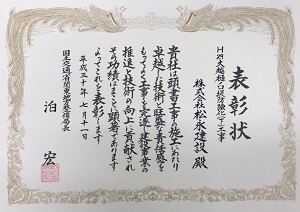 表彰状
H29大越樋ノ口堤防強化下工事
株式会社松永建設殿
貴社は頭書工事の施工にあたり
卓越した技術と旺盛な責任感を
もってよく工事を完遂し建設事業の
推進と技術の向上に貢献され
その功績はまことに顕著であります
よってこれを表彰します
平成三十年七月十一日
国土交通省関東地方整備局長
泊宏